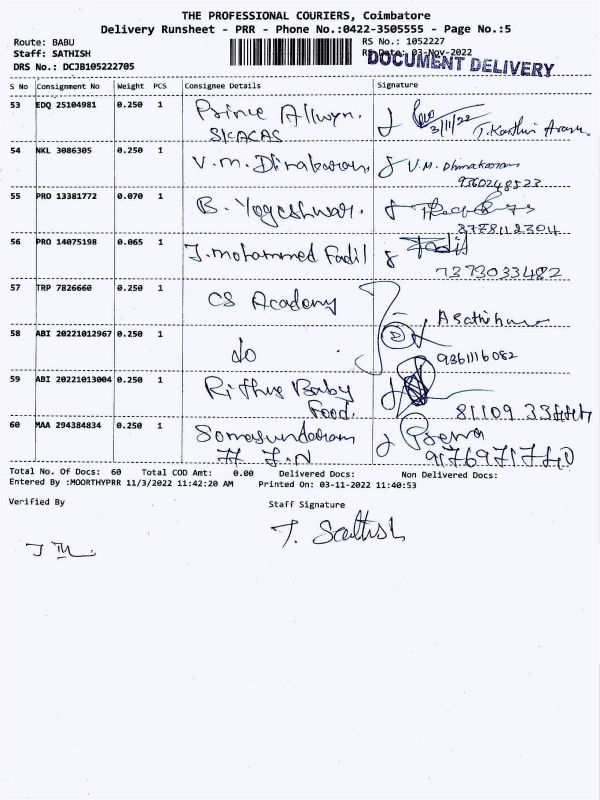 THE PROFESSIONAL COURIERS, Coimbatore
Delivery Runsheet - PRR - Phone No.:0422-3505555 - Page No.:5
Route: BABU
Staff: SATHISH
DRS No.: DCJB105222705
RS No.: 1052227
RS Date: 03-Nov-2022
DOCUMENT DELIVERY
S No Consignment No Weight PCS Consignee Details Signature
53 EDQ 25104981 0.250 1 Prince Allwyn. 3/11/22 T. Karthi
SKACAS
54 NKL 3086305 0.250 1 V.M. Dhinakaran, V.M. Dhinakaran
9360248523
55 PRO 13381772 0.070 1 B. Yogeshwar.
56 PRO 14075198 0.065 1 J. mohammed Fadil Fadil
7373033482
57 TRP 7826660 0.250 1 CS Academy
58 ABI 20221012967 0.250 1 do
9361116082
59 ABI 20221013004 0.250 1 Rithus Baby
Food. 81109 33
60 MAA 294384834 0.250 1 Somasundaram
9176971740
Total No. Of Docs: 60 Total COD Amt: 0.00 Delivered Docs: Non Delivered Docs:
Entered By :MOORTHYPRR 11/3/2022 11:42:20 AM Printed On: 03-11-2022 11:40:53
Verified By Staff Signature
T. Sathish